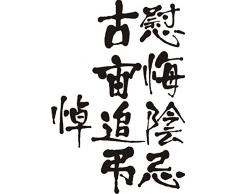 慰悔陰忌
古宙追弔
悼